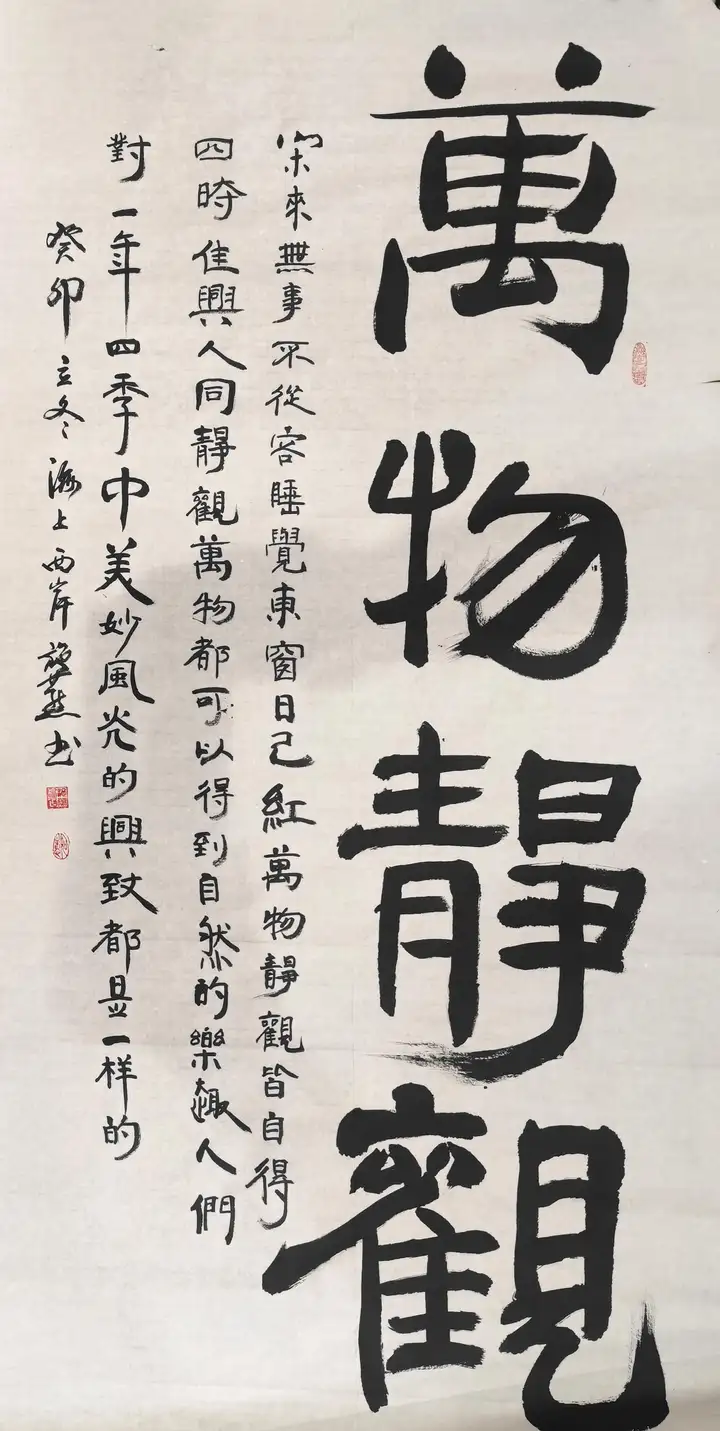 萬物靜觀
閑來無事不從容睡覺東窗日己紅萬物靜觀皆自得
四時佳興人同靜觀萬物都可以得到自然的樂趣人們
對一年四季中美妙風光的興致都是一样的
癸卯立冬海上西岸 书